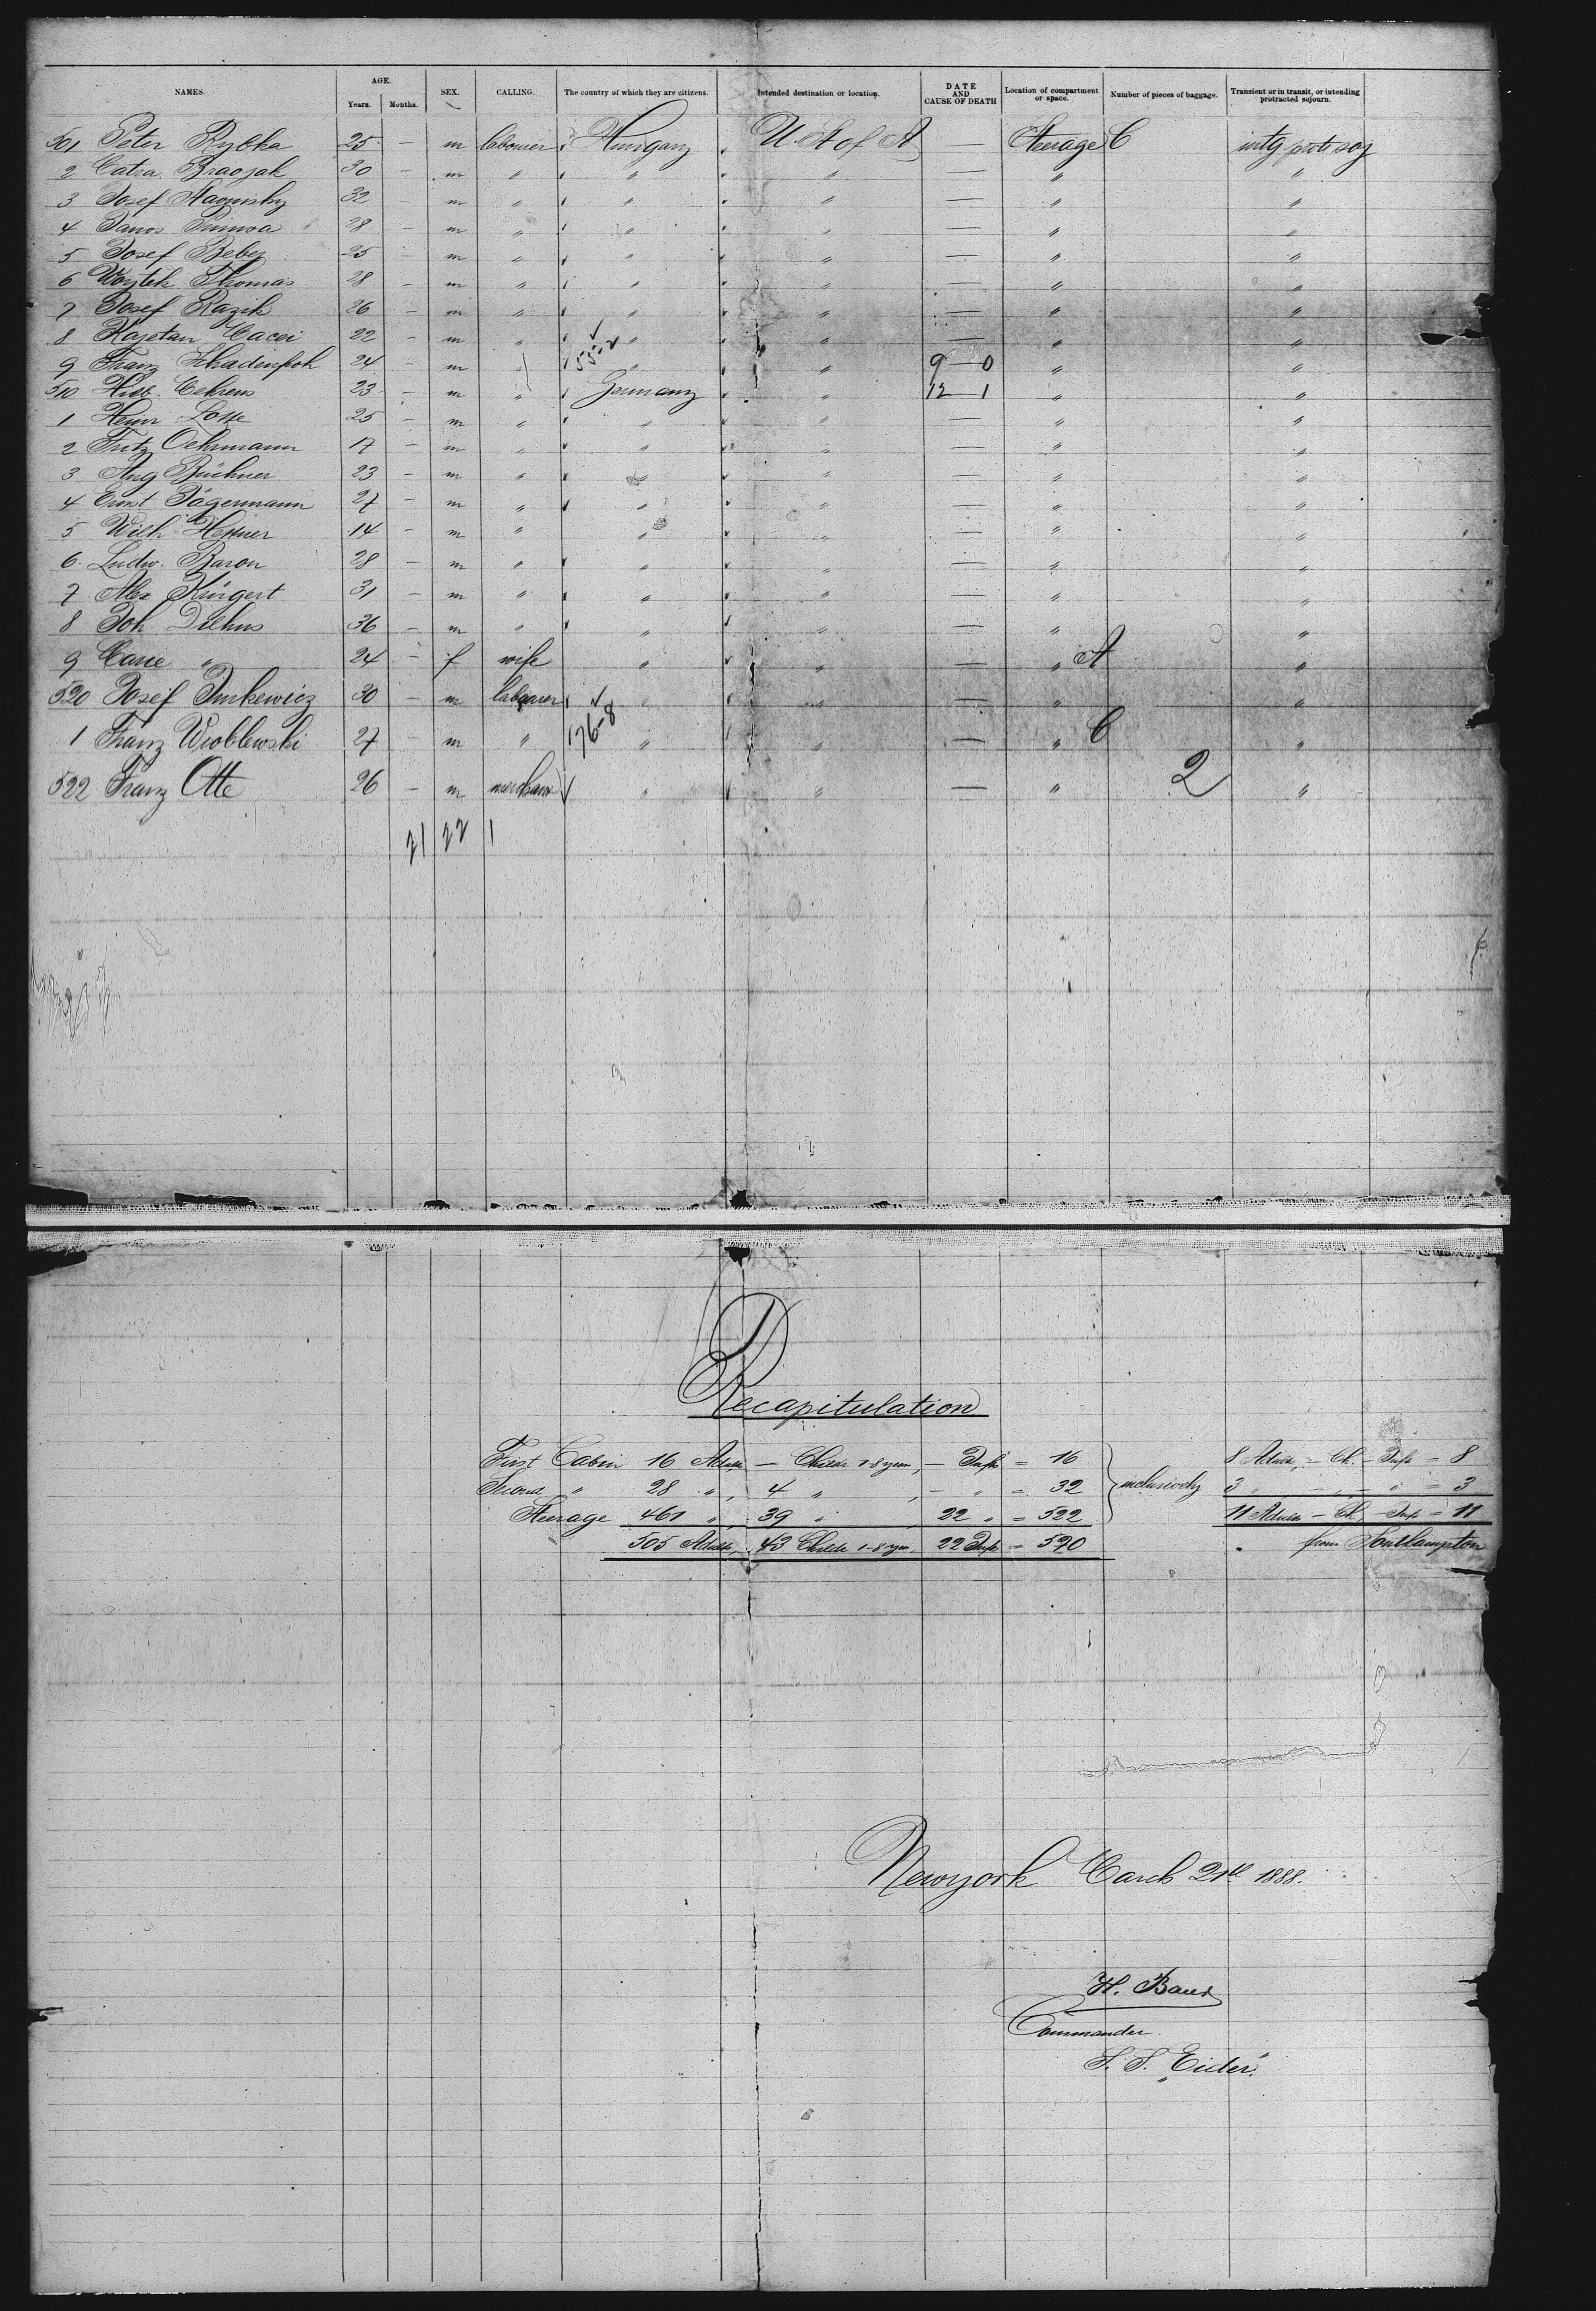 NAMES. AGE. Years. Months. SEX. CALLING. The country of which they are citizens. Intended destination or location. DATE AND CAUSE OF DEATH Location of compartment or space. Number of pieces of baggage. Transient or in transit, or intending protracted sojourn.
501 Peter Rybka 25 — m labourer Hungary U. St of A — Steerage C intg prot. soj
2 Catra 30 — m " " " — " "
3 Josef 32 — m " " " — " "
4 Janos 28 — m " " " — " "
5 Josef Bebey 25 — m " " " — " "
6 Woytek Thomas 28 — m " " " — " "
7 Josef Razik 26 — m " " " — " "
8 Kajetan 22 — m " " " — " "
9 Franz 24 — m " " " 9 — 0 " "
510 23 — m " Germany " 12 — 1 " "
1 Heinr Losse 25 — m " " " — " "
2 Fritz Oehmann 17 — m " " " — " "
3 Aug Büchner 23 — m " " " — " "
4 Ernst Jägermann 27 — m " " " — " "
5 Wilh Hessner 14 — m " " " — " "
6. Ludw. Baron 28 — m " " " — " "
7 Alex Küngert 31 — m " " " — " "
8 Joh Diehns 36 — m " " " — " "
9 " 24 — f wife " " — " A "
520 Josef Jurkewicz 30 — m labourer " " — " "
1 Franz Wroblewski 27 — m " 176-8 " " — " C "
522 Franz Otte 26 — m merchant " " — " 2 "
21 22 1
Recapitulation
First Cabin 16 Adults, — Childr 1-8 years, — Inf = 16 8 Adults, — Ch. — Inf = 8
Second " 28 ", 4 ", — " = 32 inclusively 3 " — " = 3
Steerage 461 ", 39 " 22 " = 522 11 Adults — Ch, — Inf = 11
505 Adults, 43 Childr 1-8 years, 22 Inf = 570 from Southampton
Newyork March 21th 1888.
H. Baur
Commander
S. S. Eider.